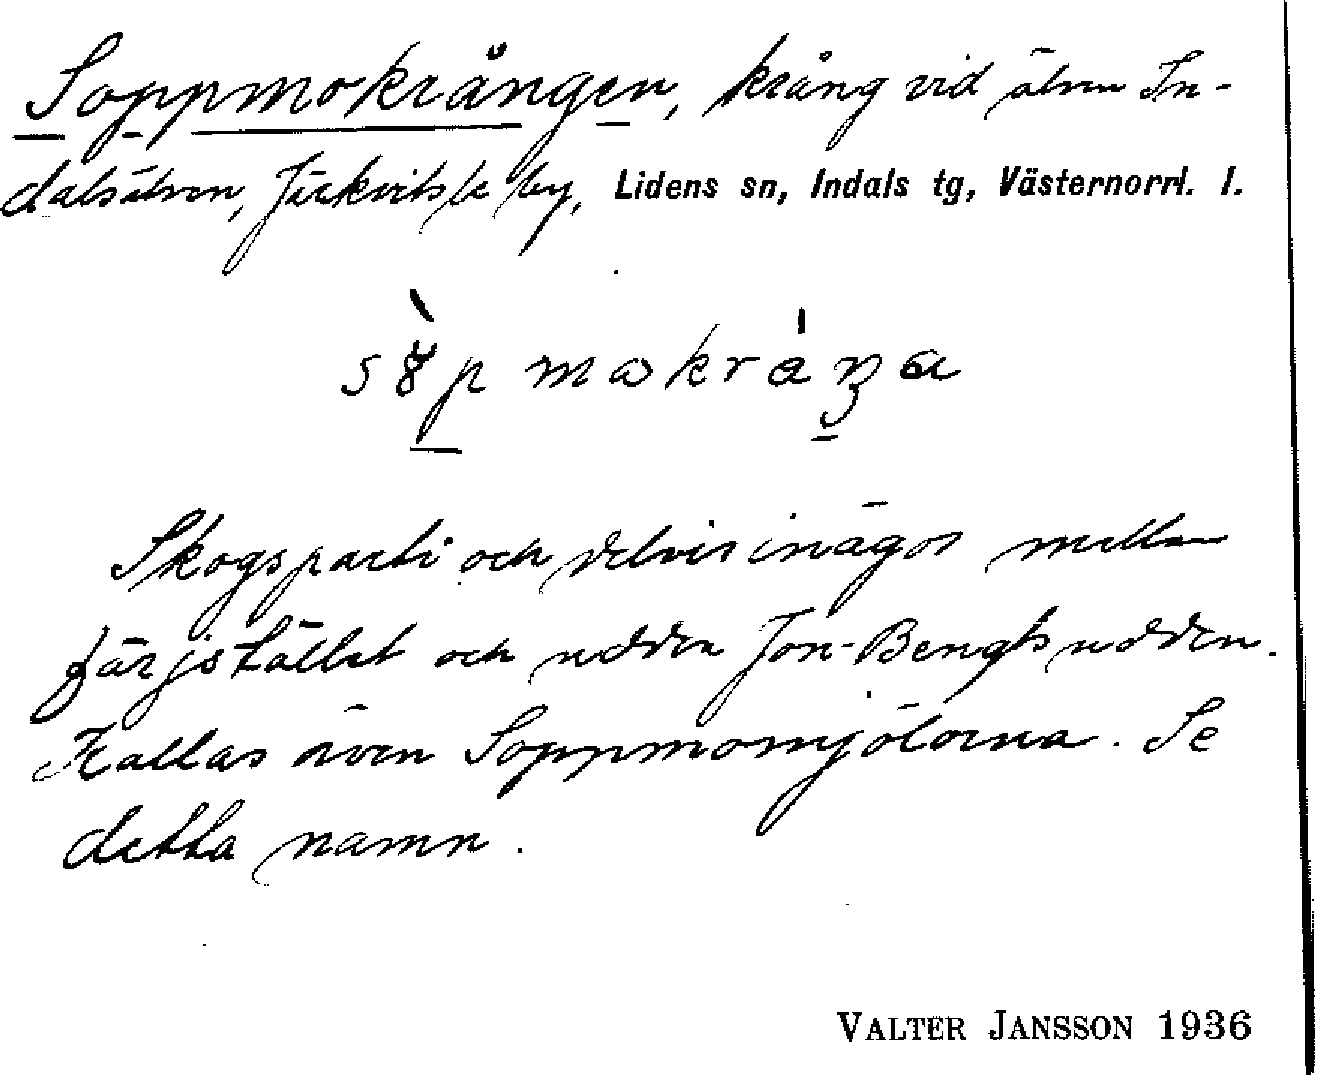 Soppmokrången, krång vid älven In-
dalsälven, Järkvitsle by, Lidens sn, Indals tg, Västernorrl. l.
Skogsparti och delvis inägor mellan
färjstället och udden Jon-Bengtsudden.
Kallas även Soppmomjölorna. Se
detta namn.
VALTER JANSSON 1936